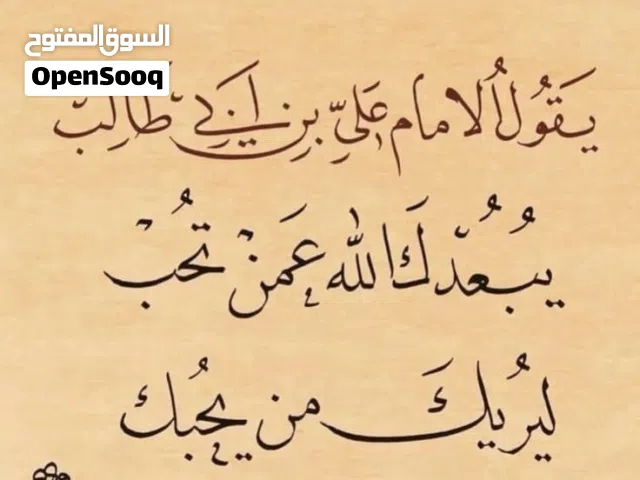 السوق المفتوح
OpenSooq
يَقُولُ الامام عَليِّ بِن اَبي طَالِبْ
يبُعُدْكَ الله عَمَنْ تُحبْ
ليُريكَ من يحُبك